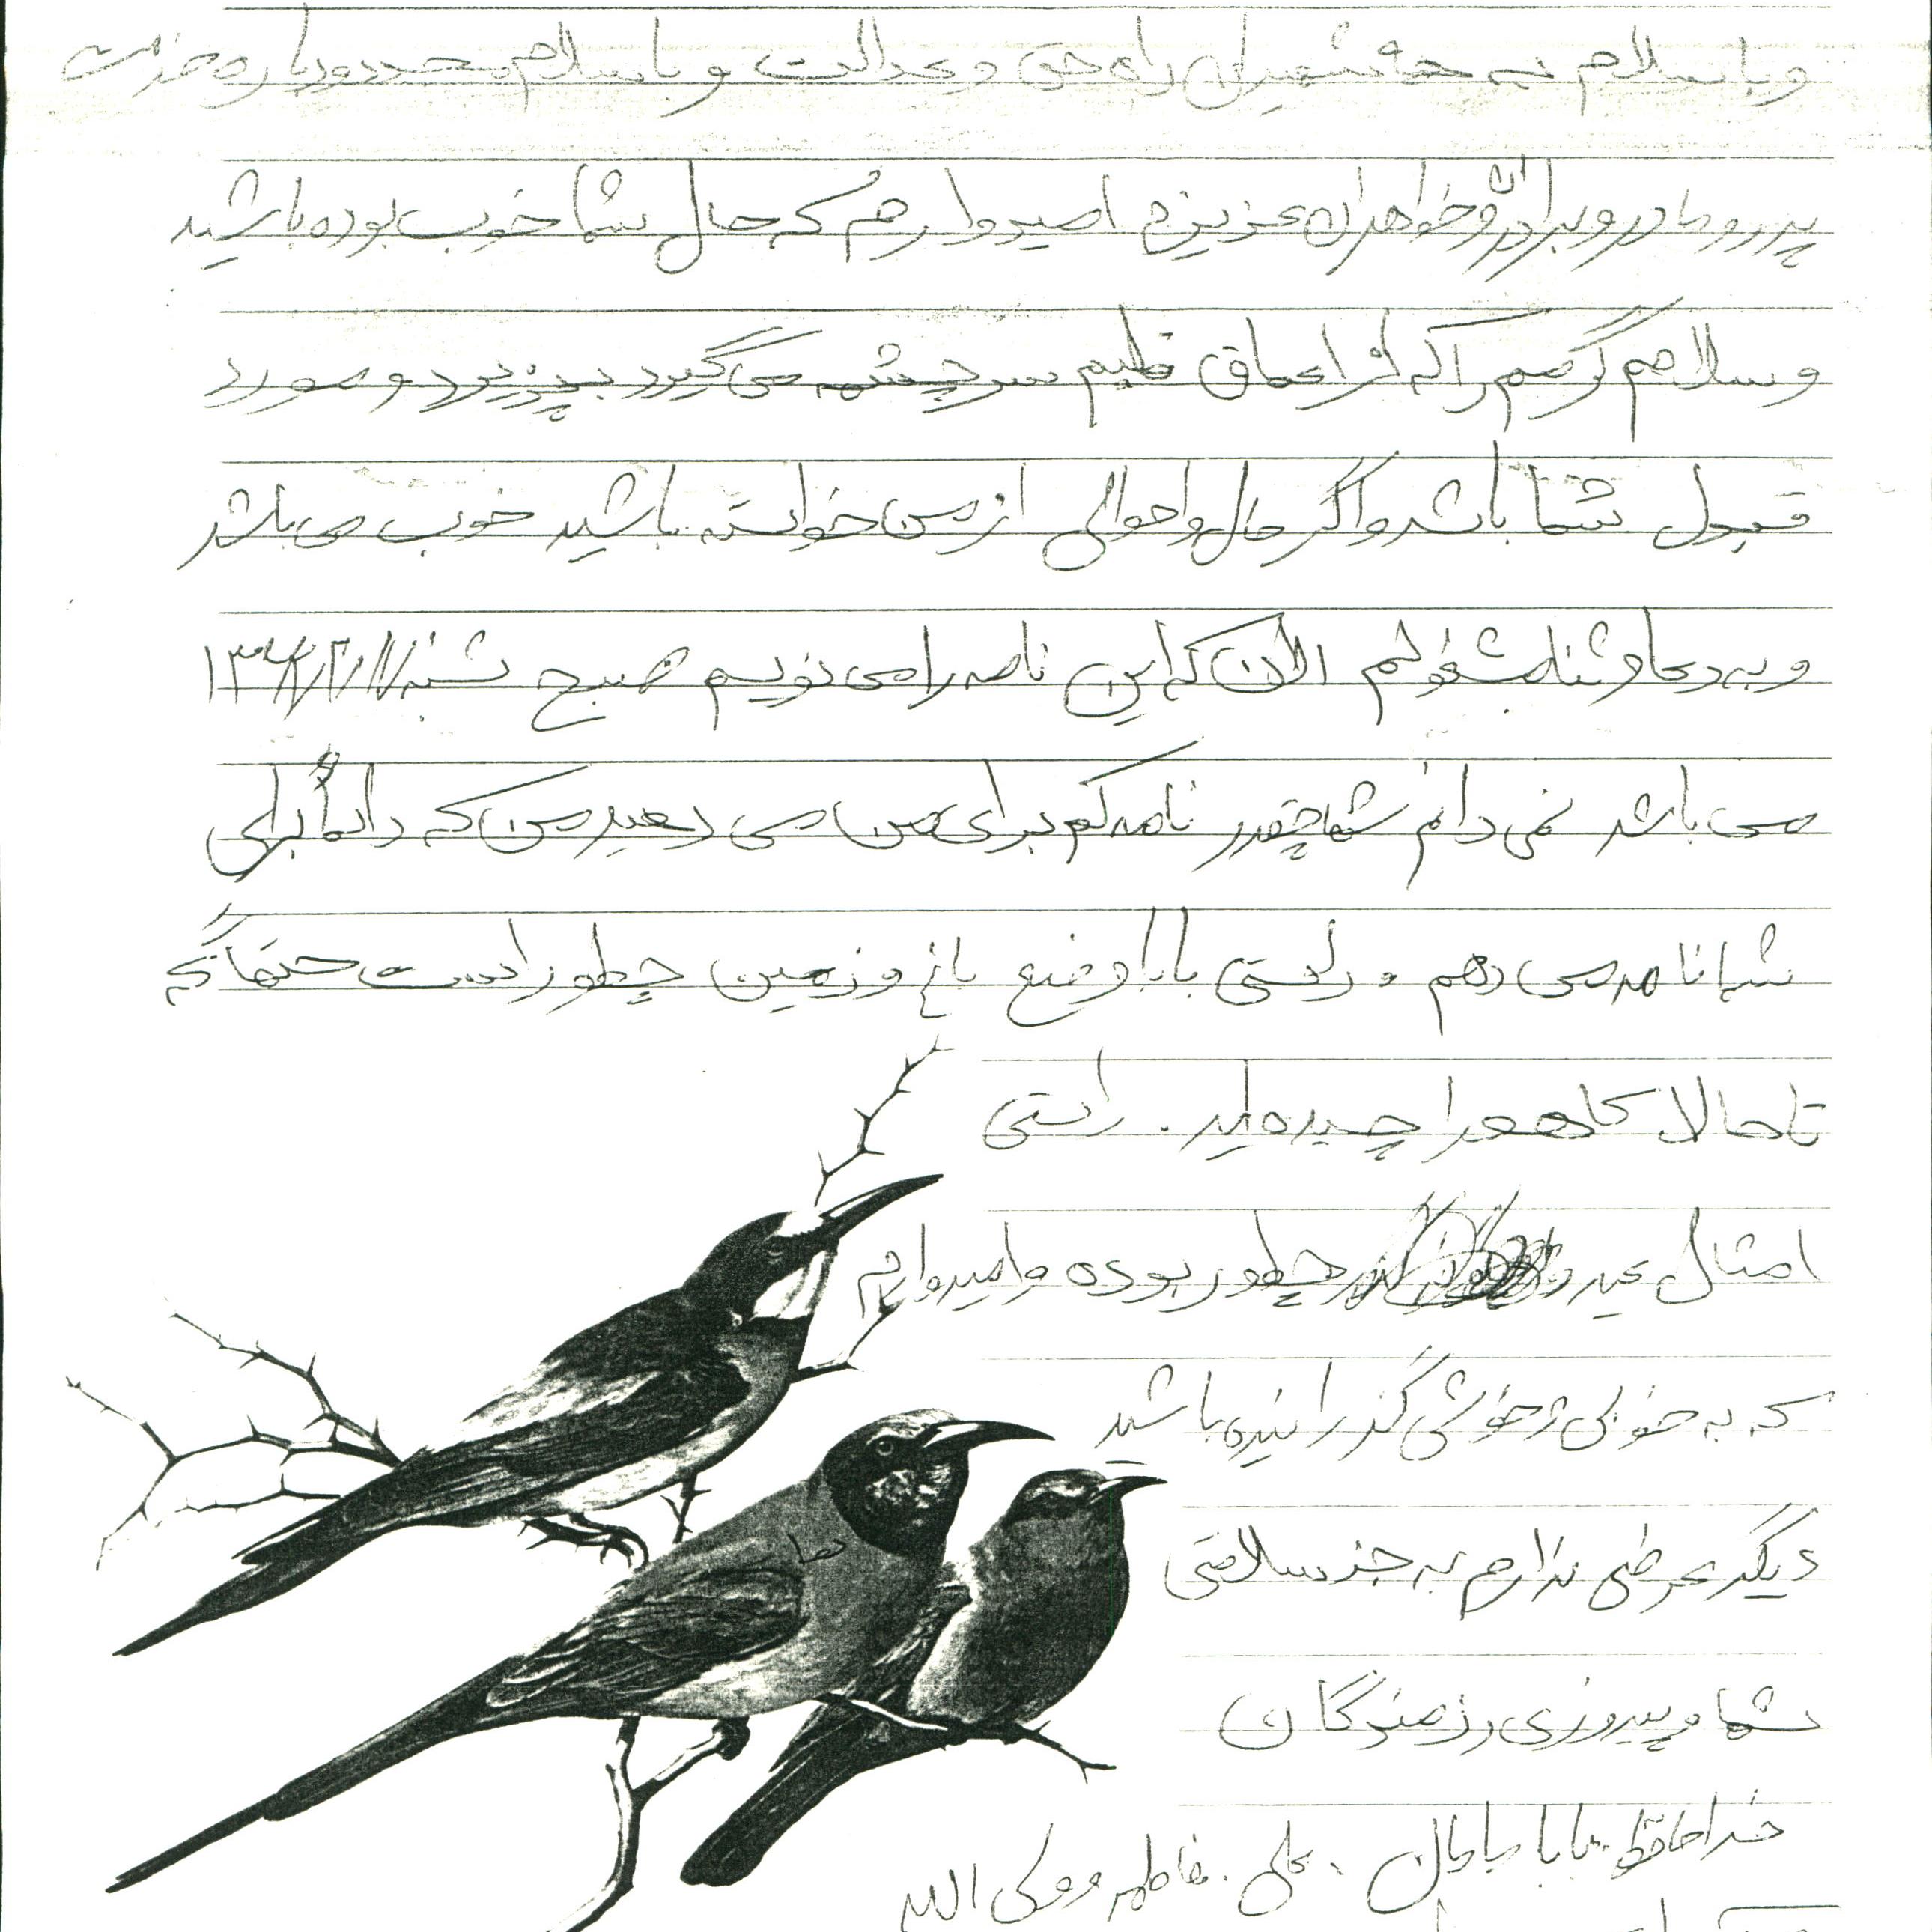 و با سلام به شهیدان راه حق و عدالت و با سلام مجدد دوباره خدمت
پدر و مادر و برادران و خواهران عزیزم امیدوارم که حال شما خوب بوده باشید
و سلام گرمم را که از اعماق قلبم سرچشمه می گیرد بپذیرید و مورد
قبول شما باشد و اگر حال و احوالی از من خواسته باشید خوب می باشد
و به دعا و ثنا مشغولم الان که این نامه را می نویسم صبح شنبه
می باشد نمی دانم شما چقدر نامه کم برای من می دهید من که دائماً برای
شما نامه می دهم و راستی بابا وضع باغ و زمین چطور است حتما که
تا حالا کاهو را چیده اید . راستی
امثال عید چطور بوده و امیدوارم
که به خوبی و خوشی گذرانیده باشید
دیگر عرضی ندارم به جز سلامتی
شما و پیروزی رزمندگان
خداحافظ بابا مامان ، علی . فاطمه